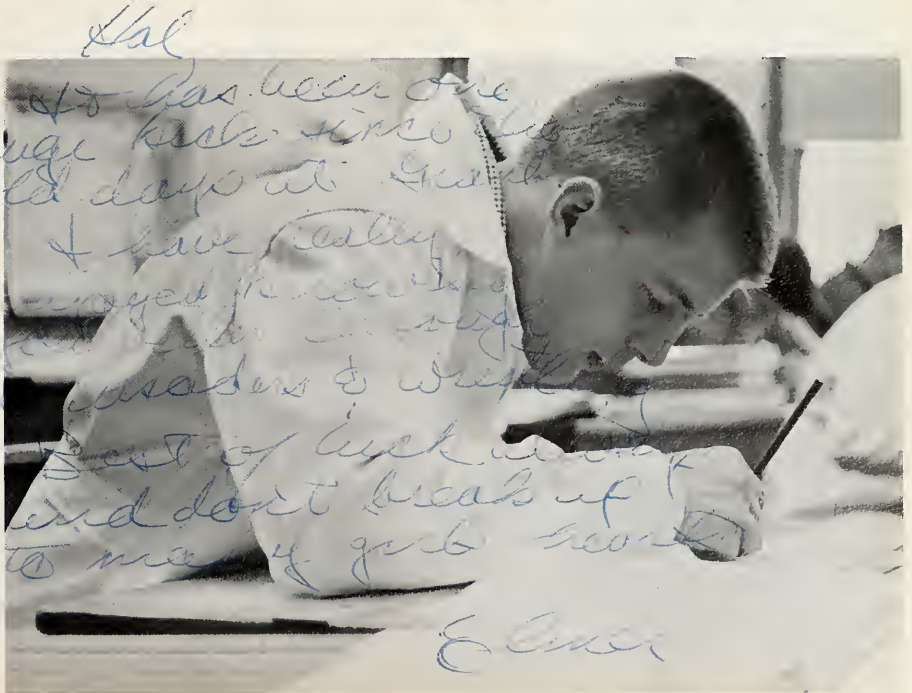 Hal,
It has been one
huge kick since the
old days at
I have really
enjoyed knowing
you in
Crusaders &
Best of luck
and don't break up
to many girls heart
Elmer